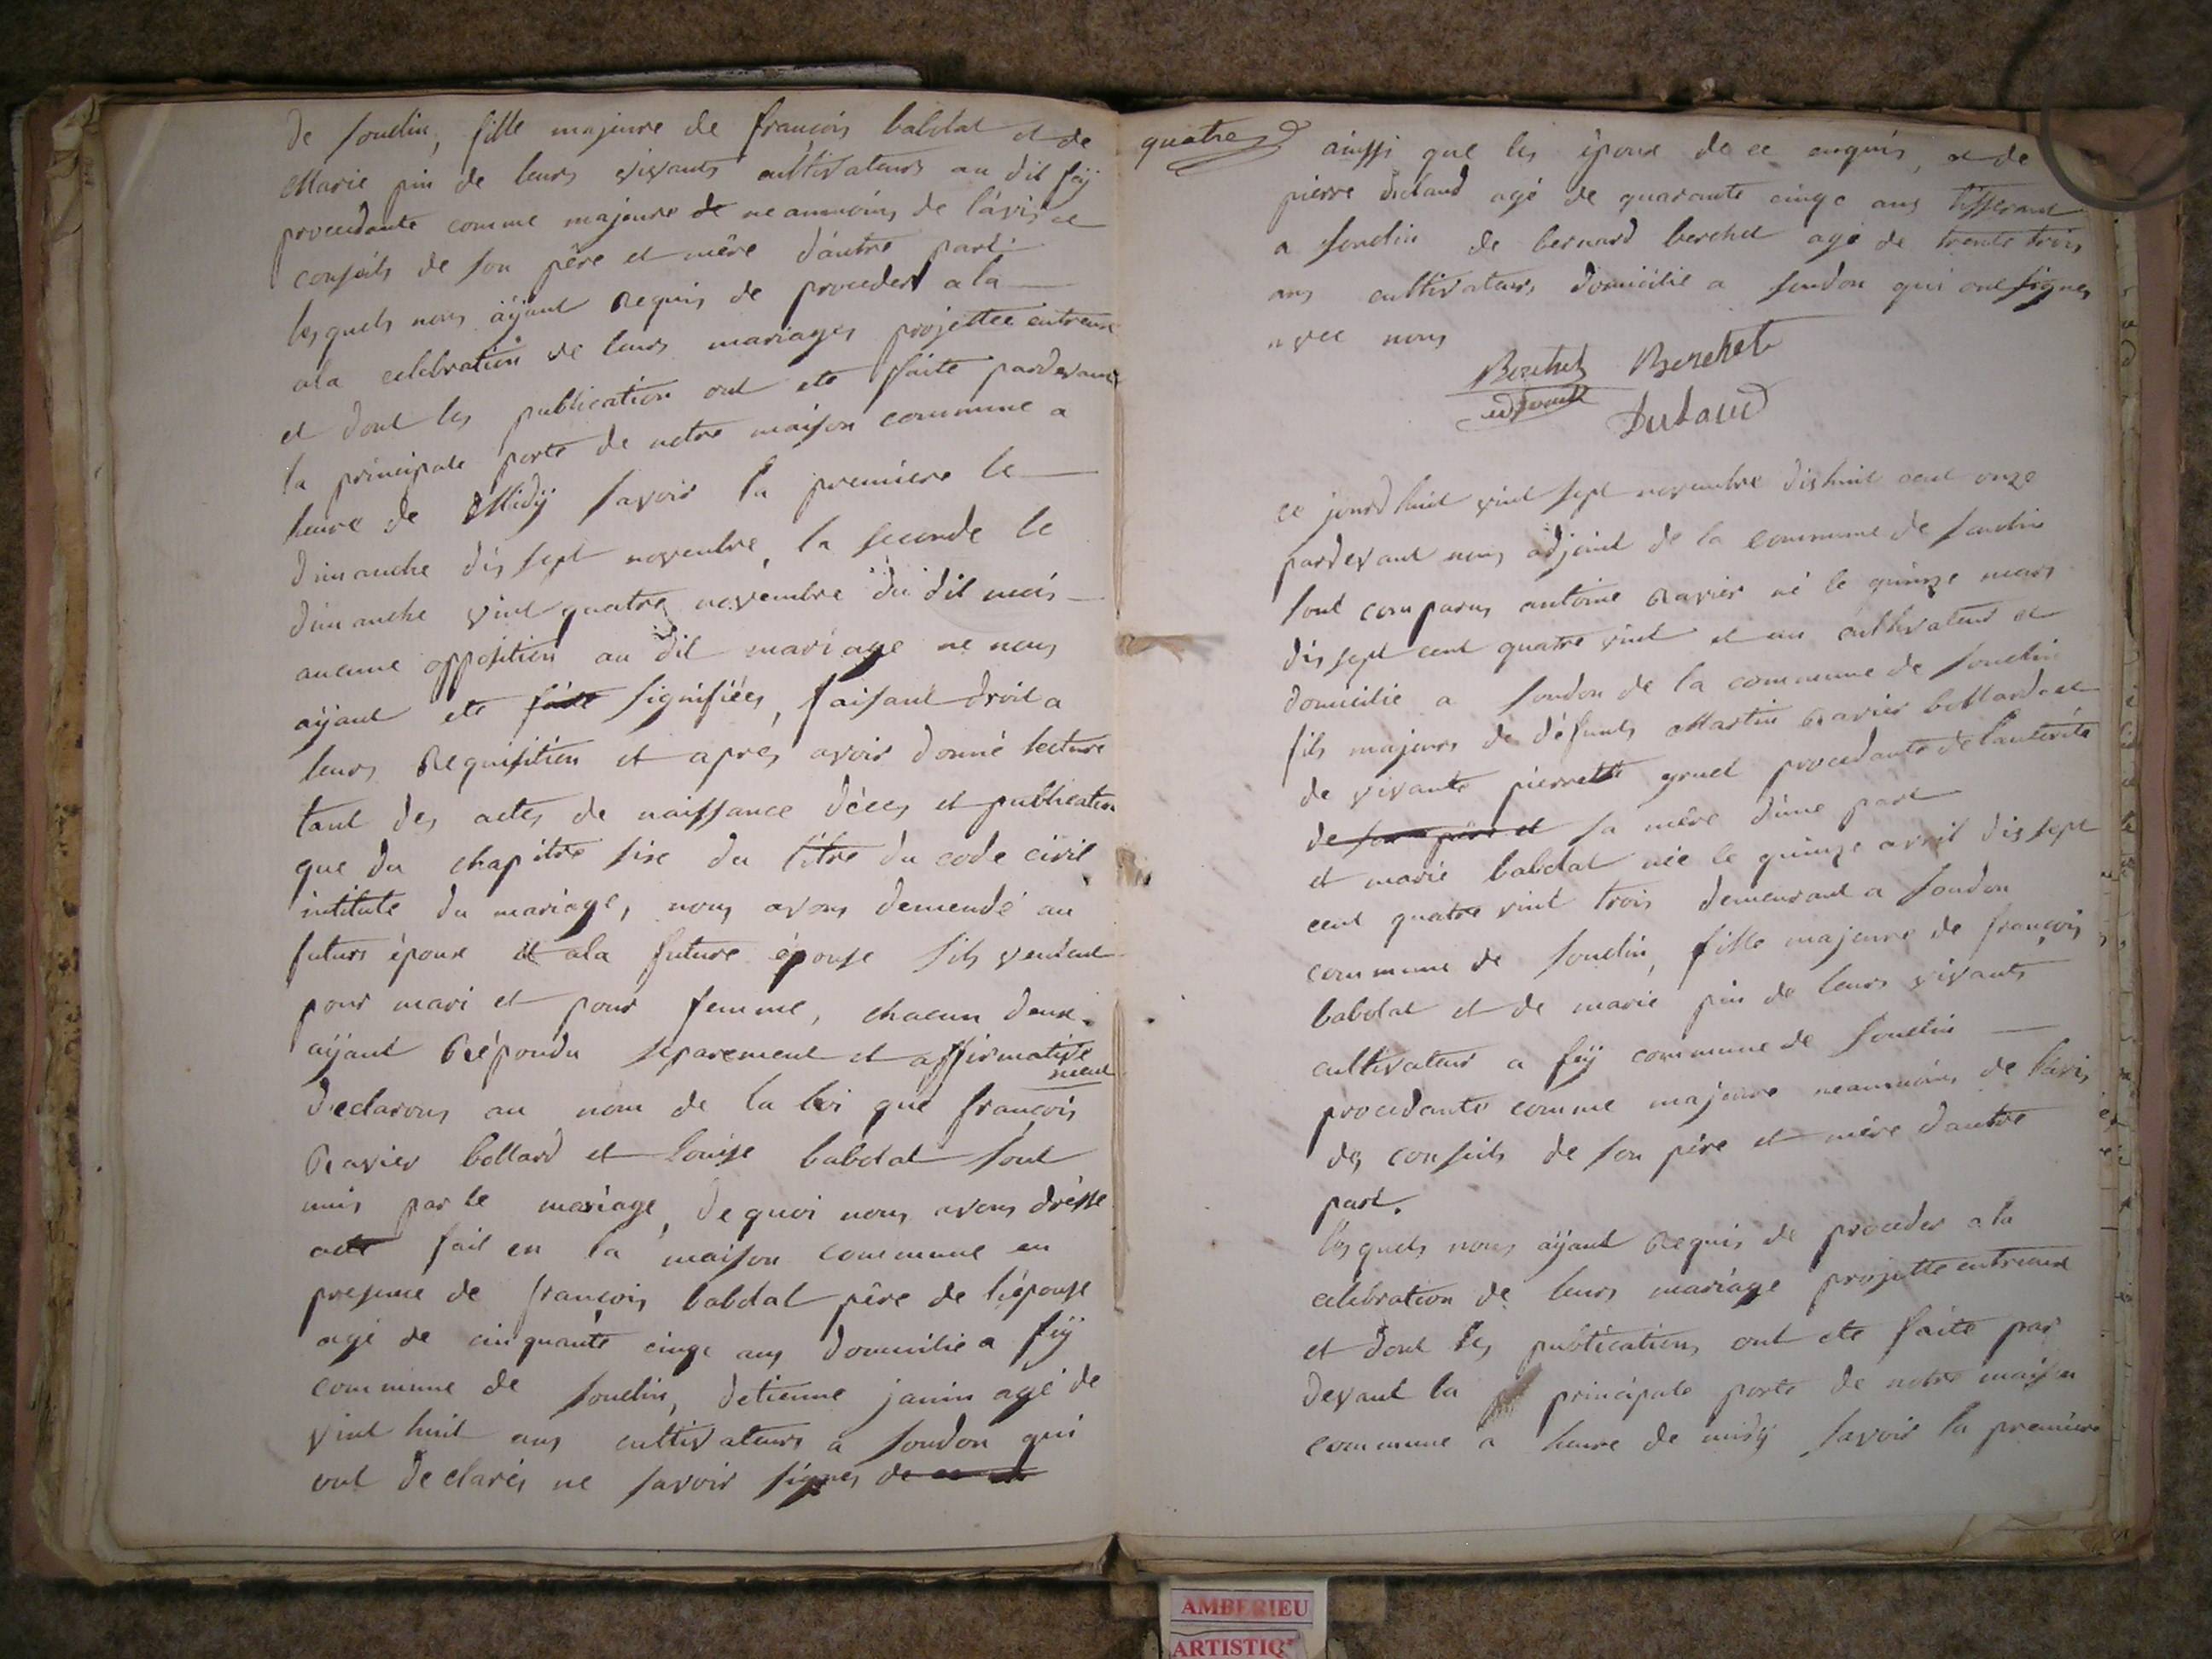 de soudin, fille majeure de françois babolat et de
Marie pin de leurs vivants cultivateurs au dit fÿ
procedante comme majeure de neanmoins de lávis et
conseils de son pêre et mêre d'autre part
lesquels nous aÿant Requis de proceder a la
ala celebration de leurs mariages projettee entreux
et dont les publication ont ete faite pardevant
la principale porte de notre maison commune a
heure de Midÿ savoir la premiere le
dimanche dis sept novembre, la seconde le
dimanche vint quatre novembre du dit mois
aucune opposition au dit mariage ne nous
aÿant ete faite signifiées, faisant droit a
leurs Requisition et aprés avoir donné lecture
tant des actes de naissance déces et publication
que du chapitre six du titre du code civil
intitute du mariage, nous avons demendé au
futurs époux et ala future épouse sils veulent
pour mari et pour femme, chacun deux
aÿant Répondu separement et affirmative
ment
declarons au nom de la loi que françois
Ravier bollard et Louise babolat sont
unis par le mariage, de quoi nous avons dresse
acte fait en la maison commune en
presence de françois babolat pêre de lépouse
agé de cinquante cinqc ans domicilie a fÿ
commune de soudin, detienne janin agé de
vint huit ans cultivateurs a soudon qui
ont declarés ne savoir signes de
quatre ainssi que les époux de ce enquis, et de
pierre dubaud agé de quarante cinqc ans tisserant
a soudin de bernard berchet agé de trente trois
ans cultivateurs domicilié a soudon qui ont signes
avec nous
Berchet Berchet
adjoint
Dubaud
ce jourd huit vint sept novembre dishuit cent onze
pardevant nous adjoint de la commune de soudin
sont comparus antoine Ravier né le quinze mars
dis sept cent quatre vint et un cultivateur et
domicilie a soudon de la commune de soudin
fils majeurs de défunts Martin Ravier bollard et
de vivante pierrette gruel procedante de lautorité
de son père et sa mêre d'une part
et marie babolat née le quinze avril dis sept
cent quatre vint trois demeurant a soudon
commune de soudin, fille majeure de françois
babolat et de marie pin de leurs vivants
cultivateur a fÿ commune de soudin
procedante comme majeure neanmoins de lávis
des conseils de son pére et mére d'autre
part.
lesquels nous aÿant Requis de proceder a la
celebration de leurs mariage projette entreux
et dont les publications ont ete faite par
devant la principale porte de notre maison
commune a heure de midÿ savoir la premiere
AMBERIEU
ARTISTIQ